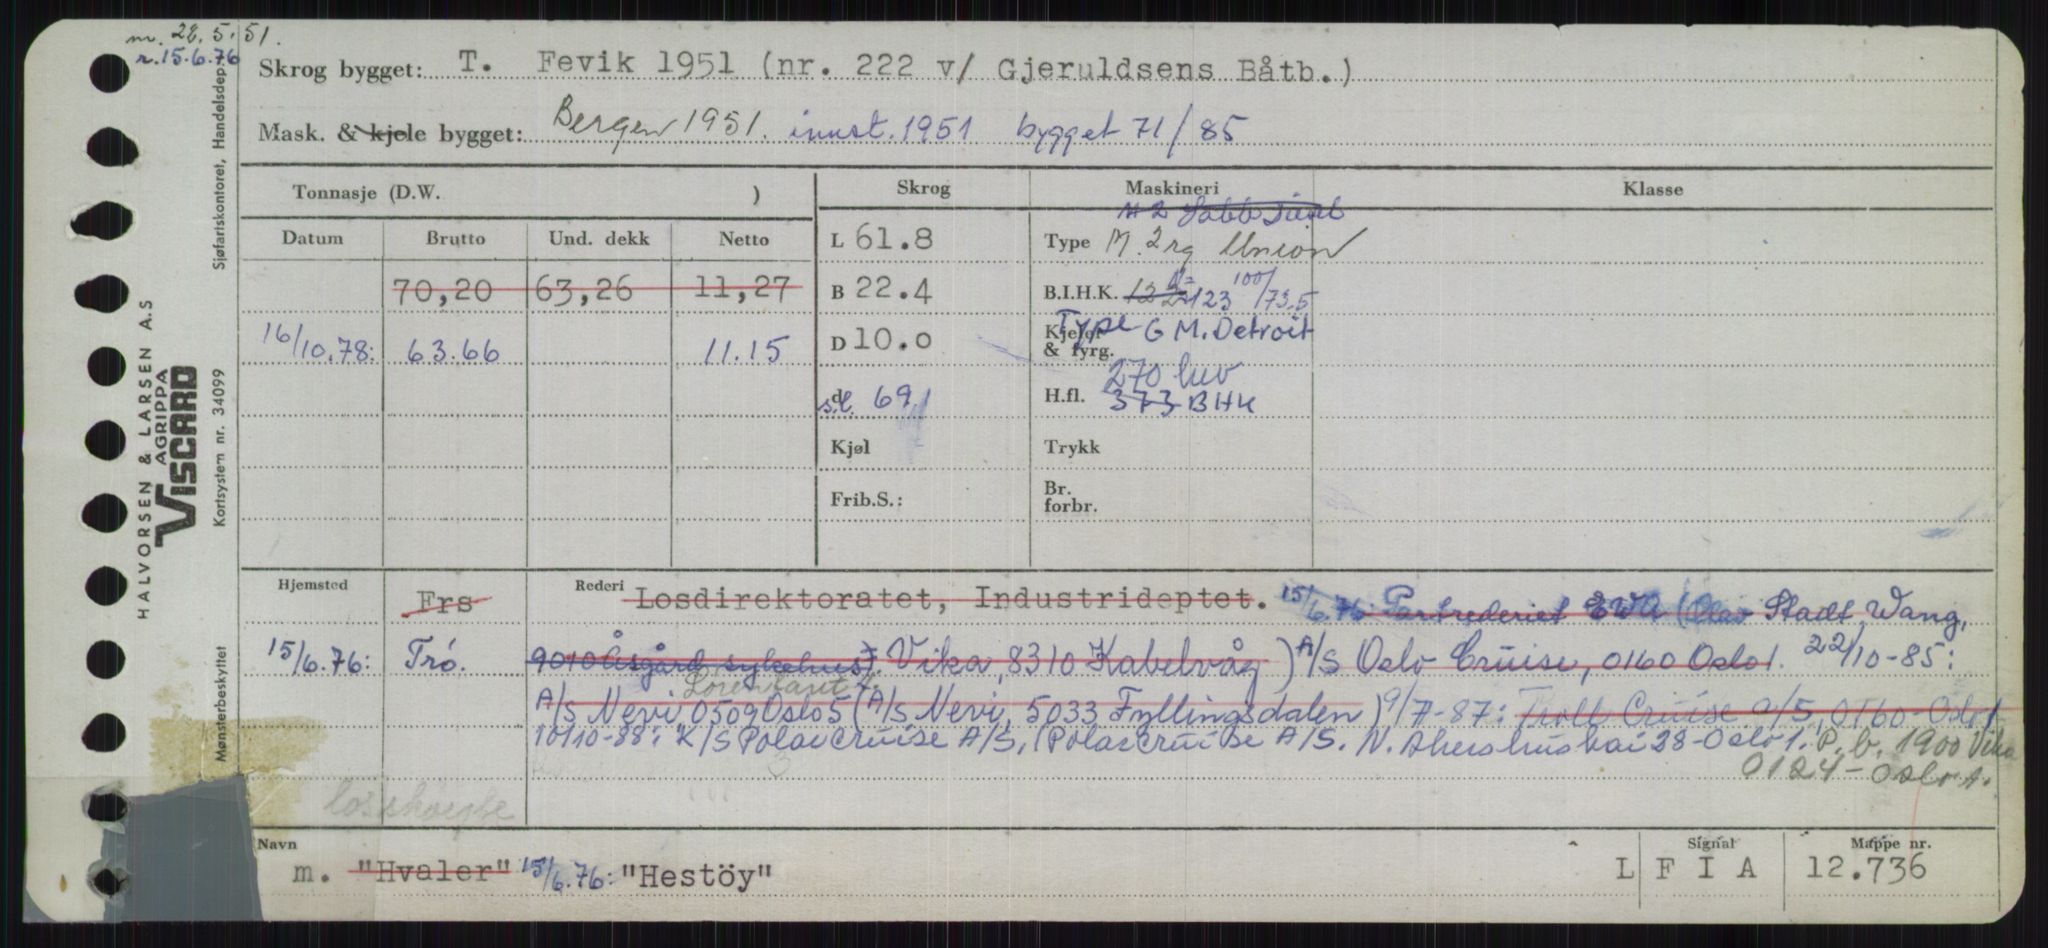 m. 28.5.51.
r. 15.6.76
Skrog bygget: T. Fevik 1951 (nr. 222 v/ Gjeruldsens Båtb.)
Mask. & kjele bygget: Bergen 1951. innst. 1951 bygget 71/85
Tonnasje (D.W. )
Skrog
Maskineri
Klasse
Datum Brutto Und. dekk Netto
70,20 63,26 11,27
16/10.78: 63.66 11.15
L 61.8
B 22.4
D 10.0
d s.l. 69,1
Kjøl
Frib.S.:
Type M. 2rg Union
B.I.H.K. 123 100/73.5
Kjeler & fyrg. Type GM. Detroit
270 
H.fl. 373 BHK
Trykk
Br. forbr.
Hjemsted Frs Rederi Losdirektoratet, Industrideptet. 15/6.76 Partrederiet EWA (Olav Stadt Wang,
15/6.76: Trö. 9010 Åsgård sykehus) Vika, 8310 Kabelvåg) A/S Oslo Cruise, 0160 Oslo 1. 22/10-85:
A/S Nevi, 0509 Oslo 5 (A/S Nevi, 5033 Fyllingsdalen) 9/7-87: Troll Cruise A/S, 0160-Oslo 1
10/10-88: K/S Polarcruise A/S, (Polarcruise A/S. N. Akershuskai 28-Oslo 1. P.b. 1900 Vika
0124-Oslo 1.
losskøyte
Navn
m. "Hvaler" 15/6.76: "Hestöy"
Signal
L F I A
Mappe nr.
12.736
HALVORSEN & LARSEN A.S
AGRIPPA
VISCARD
Sjøfartskontoret, Handelsdep.
Kortsystem nr. 34099
Mønsterbeskyttet